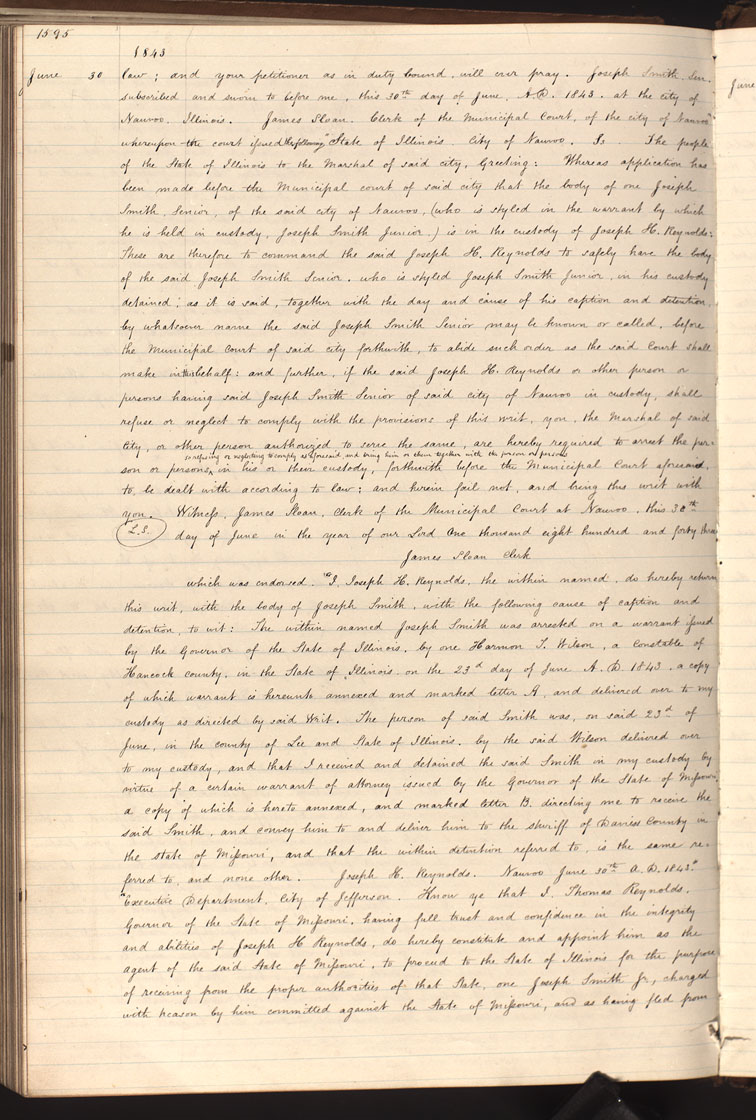 1595
1843
June 30 law; and your petitioner as in duty bound, will ever pray. Joseph Smith. Sen.
subscribed and sworn to before me, this 30th day of June, A.D. 1843. at the city of
Nauvoo. Illinois. James Sloan. Clerk of the Municipal Court, of the city of Nauvoo"
whereupon the court issued the following "State of Illinois. City of Nauvoo. Ss. The people
of the State of Illinois to the Marshal of said city, Greeting: Whereas application has
been made before the Municipal court of said city that the body of one Joseph
Smith, Senior, of the said city of Nauvoo, (who is styled in the warrant by which
he is held in custody, Joseph Smith Junior.) is in the custody of Joseph H. Reynolds:
These are therefore to command the said Joseph H. Reynolds to safely have the body
of the said Joseph Smith Senior. who is styled Joseph Smith Junior, in his custody
detained; as it is said, together with the day and cause of his caption and detention,
by whatsoever name the said Joseph Smith Senior may be known or called, before
the Municipal Court of said city forthwith, to abide such order as the said Court shall
make in this behalf: and further, if the said Joseph H. Reynolds or other person or
persons having said Joseph Smith Senior of said city of Nauvoo in custody, shall
refuse or neglect to comply with the provisions of this writ, you, the Marshal of said
City, or other person authorized to serve the same, are hereby required to arrest the per-
so refusing or neglecting to comply as aforesaid, and bring him or them together with the person or persons
son or persons, in his or their custody, forthwith before the Municipal Court aforesaid,
to, be dealt with according to law; and herein fail not, and bring this writ with
you. Witness, James Sloan, Clerk of the Municipal Court at Nauvoo, this 30th
L.S. day of June in the year of our Lord One thousand eight hundred and forty three
James Sloan Clerk
which was endorsed. "I, Joseph H. Reynolds, the within named, do hereby return
this writ, with the body of Joseph Smith, with the following cause of caption and
detention, to wit: The within named Joseph Smith was arrested on a warrant issued
by the Governor of the State of Illinois, by one Harmon T. Wilson, a Constable of
Hancock county, in the State of Illinois on the 23d day of June A.D. 1843, a copy
of which warrant is hereunto annexed and marked letter A, and delivered over to my
custody as directed by said Writ. The person of said Smith was, on said 23d of
June, in the county of Lee and State of Illinois. by the said Wilson delivered over
to my custody, and that I received and detained the said Smith in my custody by
virtue of a certain warrant of attorney issued by the Governor of the State of Missouri,
a copy of which is hereto annexed, and marked letter B, directing me to receive the
said Smith, and convey him to and deliver him to the sheriff of Daviess County in
the state of Missouri, and that the within detention referred to, is the same re-
ferred to, and none other. Joseph H. Reynolds. Nauvoo June 30th A.D. 1843"
"Executive Department, City of Jefferson. Know ye that I, Thomas Reynolds,
Governor of the State of Missouri, having full trust and confidence in the integrity
and abilities of Joseph H Reynolds, do hereby constitute and appoint him as the
agent of the said State of Missouri, to proceed to the State of Illinois for the purpose
of receiving from the proper authorities of that State, one Joseph Smith Jr., charged
with treason by him committed against the State of Missouri, and as having fled from
June